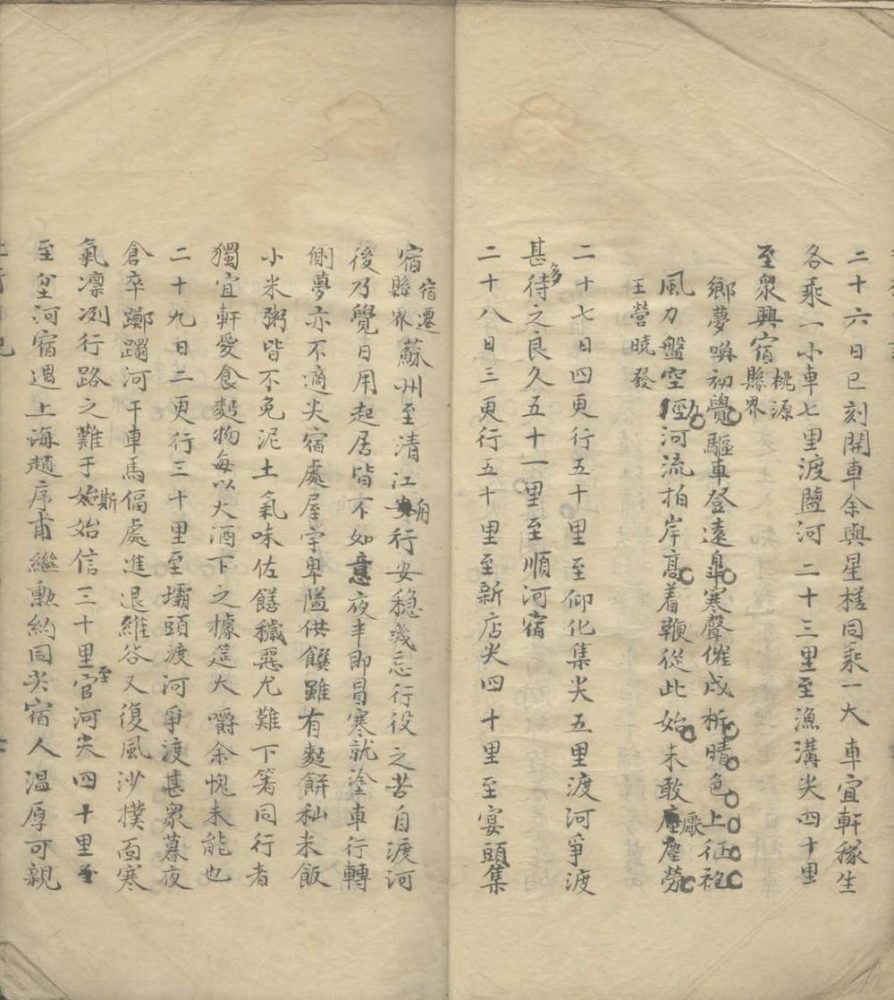 二十六日巳刻開車余與星槎同乘一大車宜軒稼生
各乘一小車七里渡鹽河二十三里至漁溝尖四十里
至衆興宿桃源縣界
鄉夢喚初覺驅車登遠臯寒聲催戍柝晴色上征袍
風力盤空勁河流拍岸高着鞭從此始未敢厭塵勞
王營曉發
二十七日四更行五十里至仰化集尖五里渡河爭渡
甚多待之良久五十一里至順河宿
二十八日三更行五十里至新店尖四十里至宴頭集
宿宿遷縣界蘇州至清江舟行安穩幾忘行役之苦自渡河
後乃覺日用起居皆不如意夜半即冒寒就塗車行轉
側夢亦不適尖宿處屋宇卑隘供饌雖有麨餅秈米飯
小米粥皆不免泥土氣味佐饍穢惡尤難下箸同行者
獨宜軒愛食麨物每以大酒下之據筵大嚼余愧未能也
二十九日二更行三十里至壩頭渡河爭渡甚衆暮夜
倉卒躑躅河干車馬偪處進退維谷又復風沙撲面寒
氣凛冽行路之難于斯始信三十里至官河尖四十里
至坌河宿遇上海趙序甫繼勲約同尖宿人溫厚可親